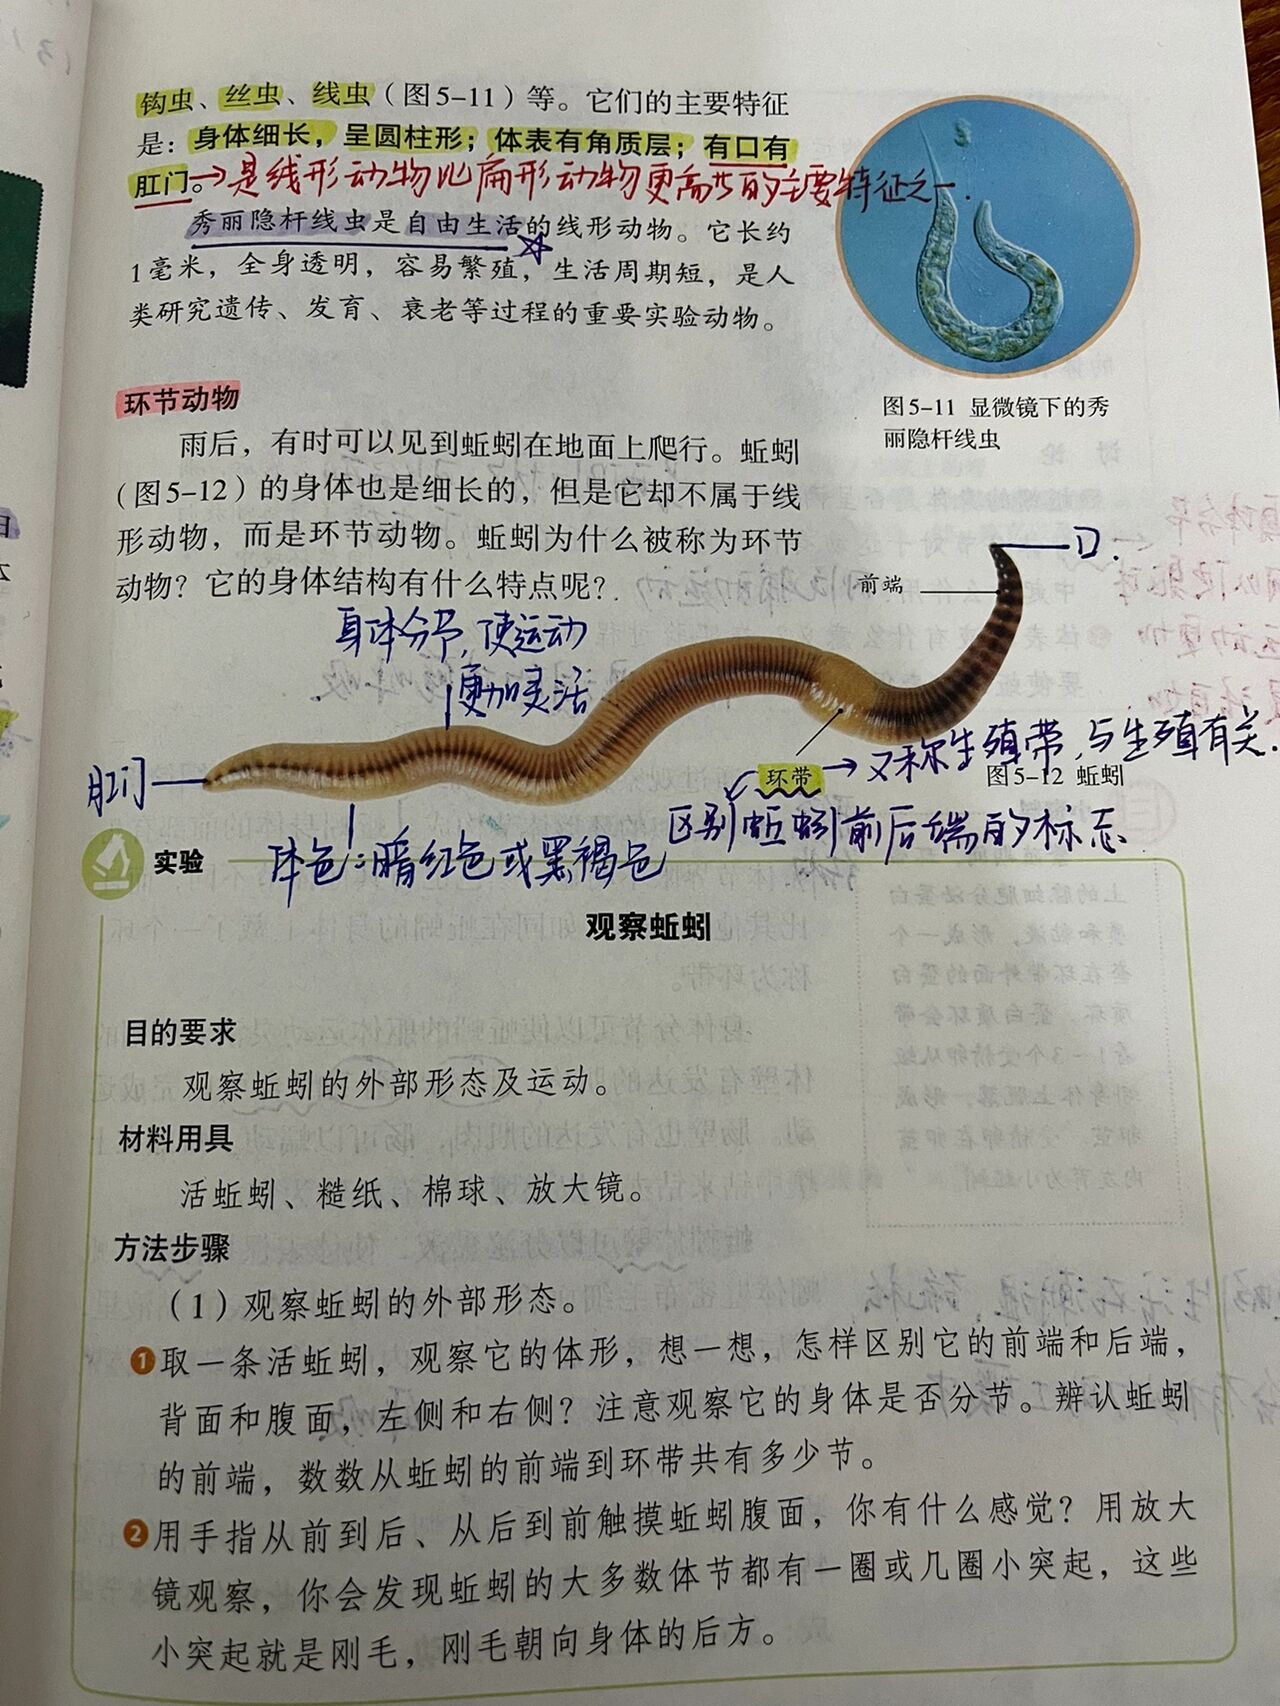 钩虫、丝虫、线虫（图5-11）等。它们的主要特征
是：身体细长，呈圆柱形；体表有角质层；有口有
肛门。→是线形动物比扁形动物更高等的主要特征之一.
秀丽隐杆线虫是自由生活的线形动物。它长约
1毫米，全身透明，容易繁殖，生活周期短，是人
类研究遗传、发育、衰老等过程的重要实验动物。
图5-11 显微镜下的秀
丽隐杆线虫
环节动物
雨后，有时可以见到蚯蚓在地面上爬行。蚯蚓
（图5-12）的身体也是细长的，但是它却不属于线
形动物，而是环节动物。蚯蚓为什么被称为环节
动物？它的身体结构有什么特点呢？
口.
前端
身体分节,使运动
更加灵活
肛门
环带→又称生殖带,与生殖有关.
图5-12 蚯蚓
区别蚯蚓前后端的标志
体色:暗红色或黑褐色
实验
观察蚯蚓
目的要求
观察蚯蚓的外部形态及运动。
材料用具
活蚯蚓、糙纸、棉球、放大镜。
方法步骤
（1）观察蚯蚓的外部形态。
❶取一条活蚯蚓，观察它的体形，想一想，怎样区别它的前端和后端，
背面和腹面，左侧和右侧？注意观察它的身体是否分节。辨认蚯蚓
的前端，数数从蚯蚓的前端到环带共有多少节。
❷用手指从前到后、从后到前触摸蚯蚓腹面，你有什么感觉？用放大
镜观察，你会发现蚯蚓的大多数体节都有一圈或几圈小突起，这些
小突起就是刚毛，刚毛朝向身体的后方。